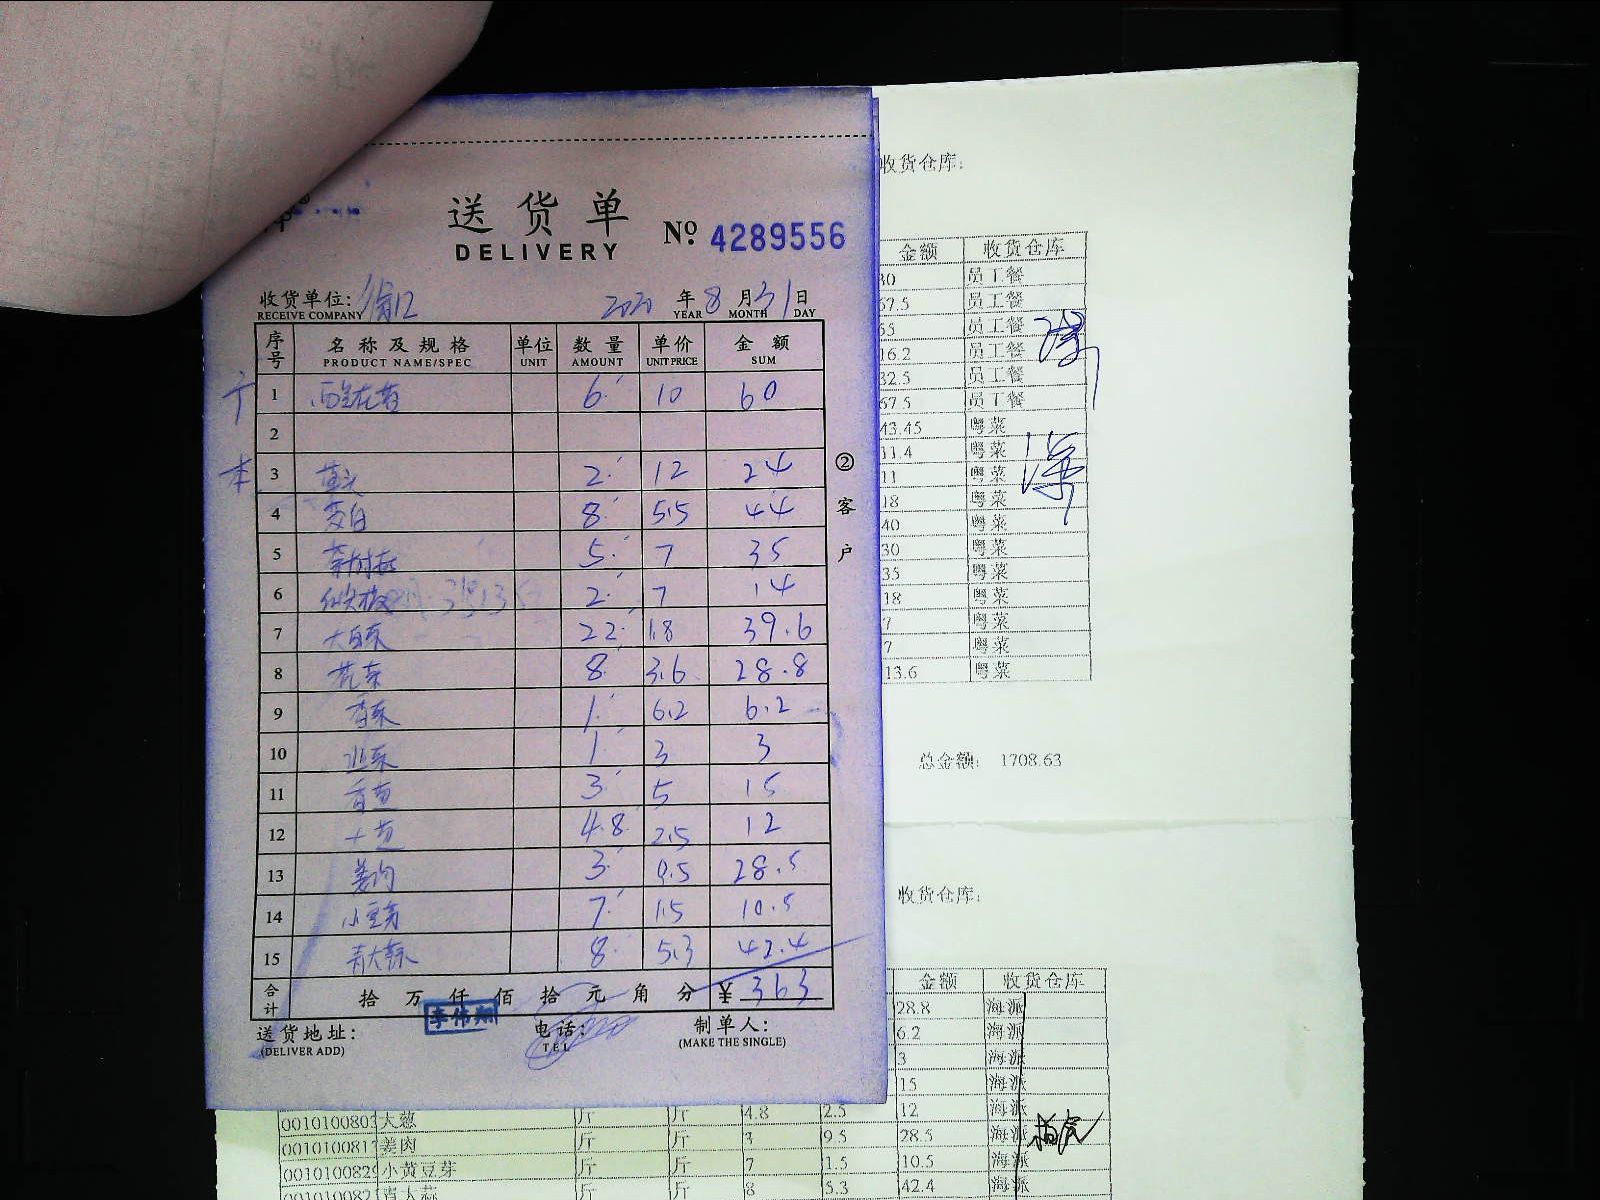 送货单
DELIVERY
No. 4289556
收货单位:
RECEIVE COMPANY
2020 年 8 月 31 日
YEAR MONTH DAY
序号 名称及规格 单位 数量 单价 金额
PRODUCT NAME/SPEC UNIT AMOUNT UNIT PRICE SUM
1 西兰花苗 6 10 60
2
3 草头 2 12 24
4 茭白 8 5.5 44
5 5 7 35
6 2 7 14
7 大白菜 22 1.8 39.6
8 芹菜 8 3.6 28.8
9 香菜 1 6.2 6.2
10 1 3 3
11 香葱 3 5 15
12 大葱 4.8 2.5 12
13 姜肉 3 9.5 28.5
14 小豆芽 7 1.5 10.5
15 青大蒜 8 5.3 42.4
合计 拾 万 仟 佰 拾 元 角 分 ¥ 363
李伟翔
送货地址: 电话: 制单人:
(DELIVER ADD) TEL (MAKE THE SINGLE)
②客户
收货仓库:
金额 收货仓库
30 员工餐
67.5 员工餐
55 员工餐
16.2 员工餐
32.5 员工餐
67.5 员工餐
43.45 粤菜
11.4 粤菜
11 粤菜
18 粤菜
40 粤菜
30 粤菜
35 粤菜
18 粤菜
7 粤菜
7 粤菜
13.6 粤菜
总金额: 1708.63
收货仓库:
金额 收货仓库
28.8 海派
6.2 海派
3 海派
15 海派
大葱 斤 斤 4.8 2.5 12 海派
姜肉 斤 斤 3 9.5 28.5 海派
小黄豆芽 斤 斤 7 1.5 10.5 海派
青大蒜 斤 斤 8 5.3 42.4 海派